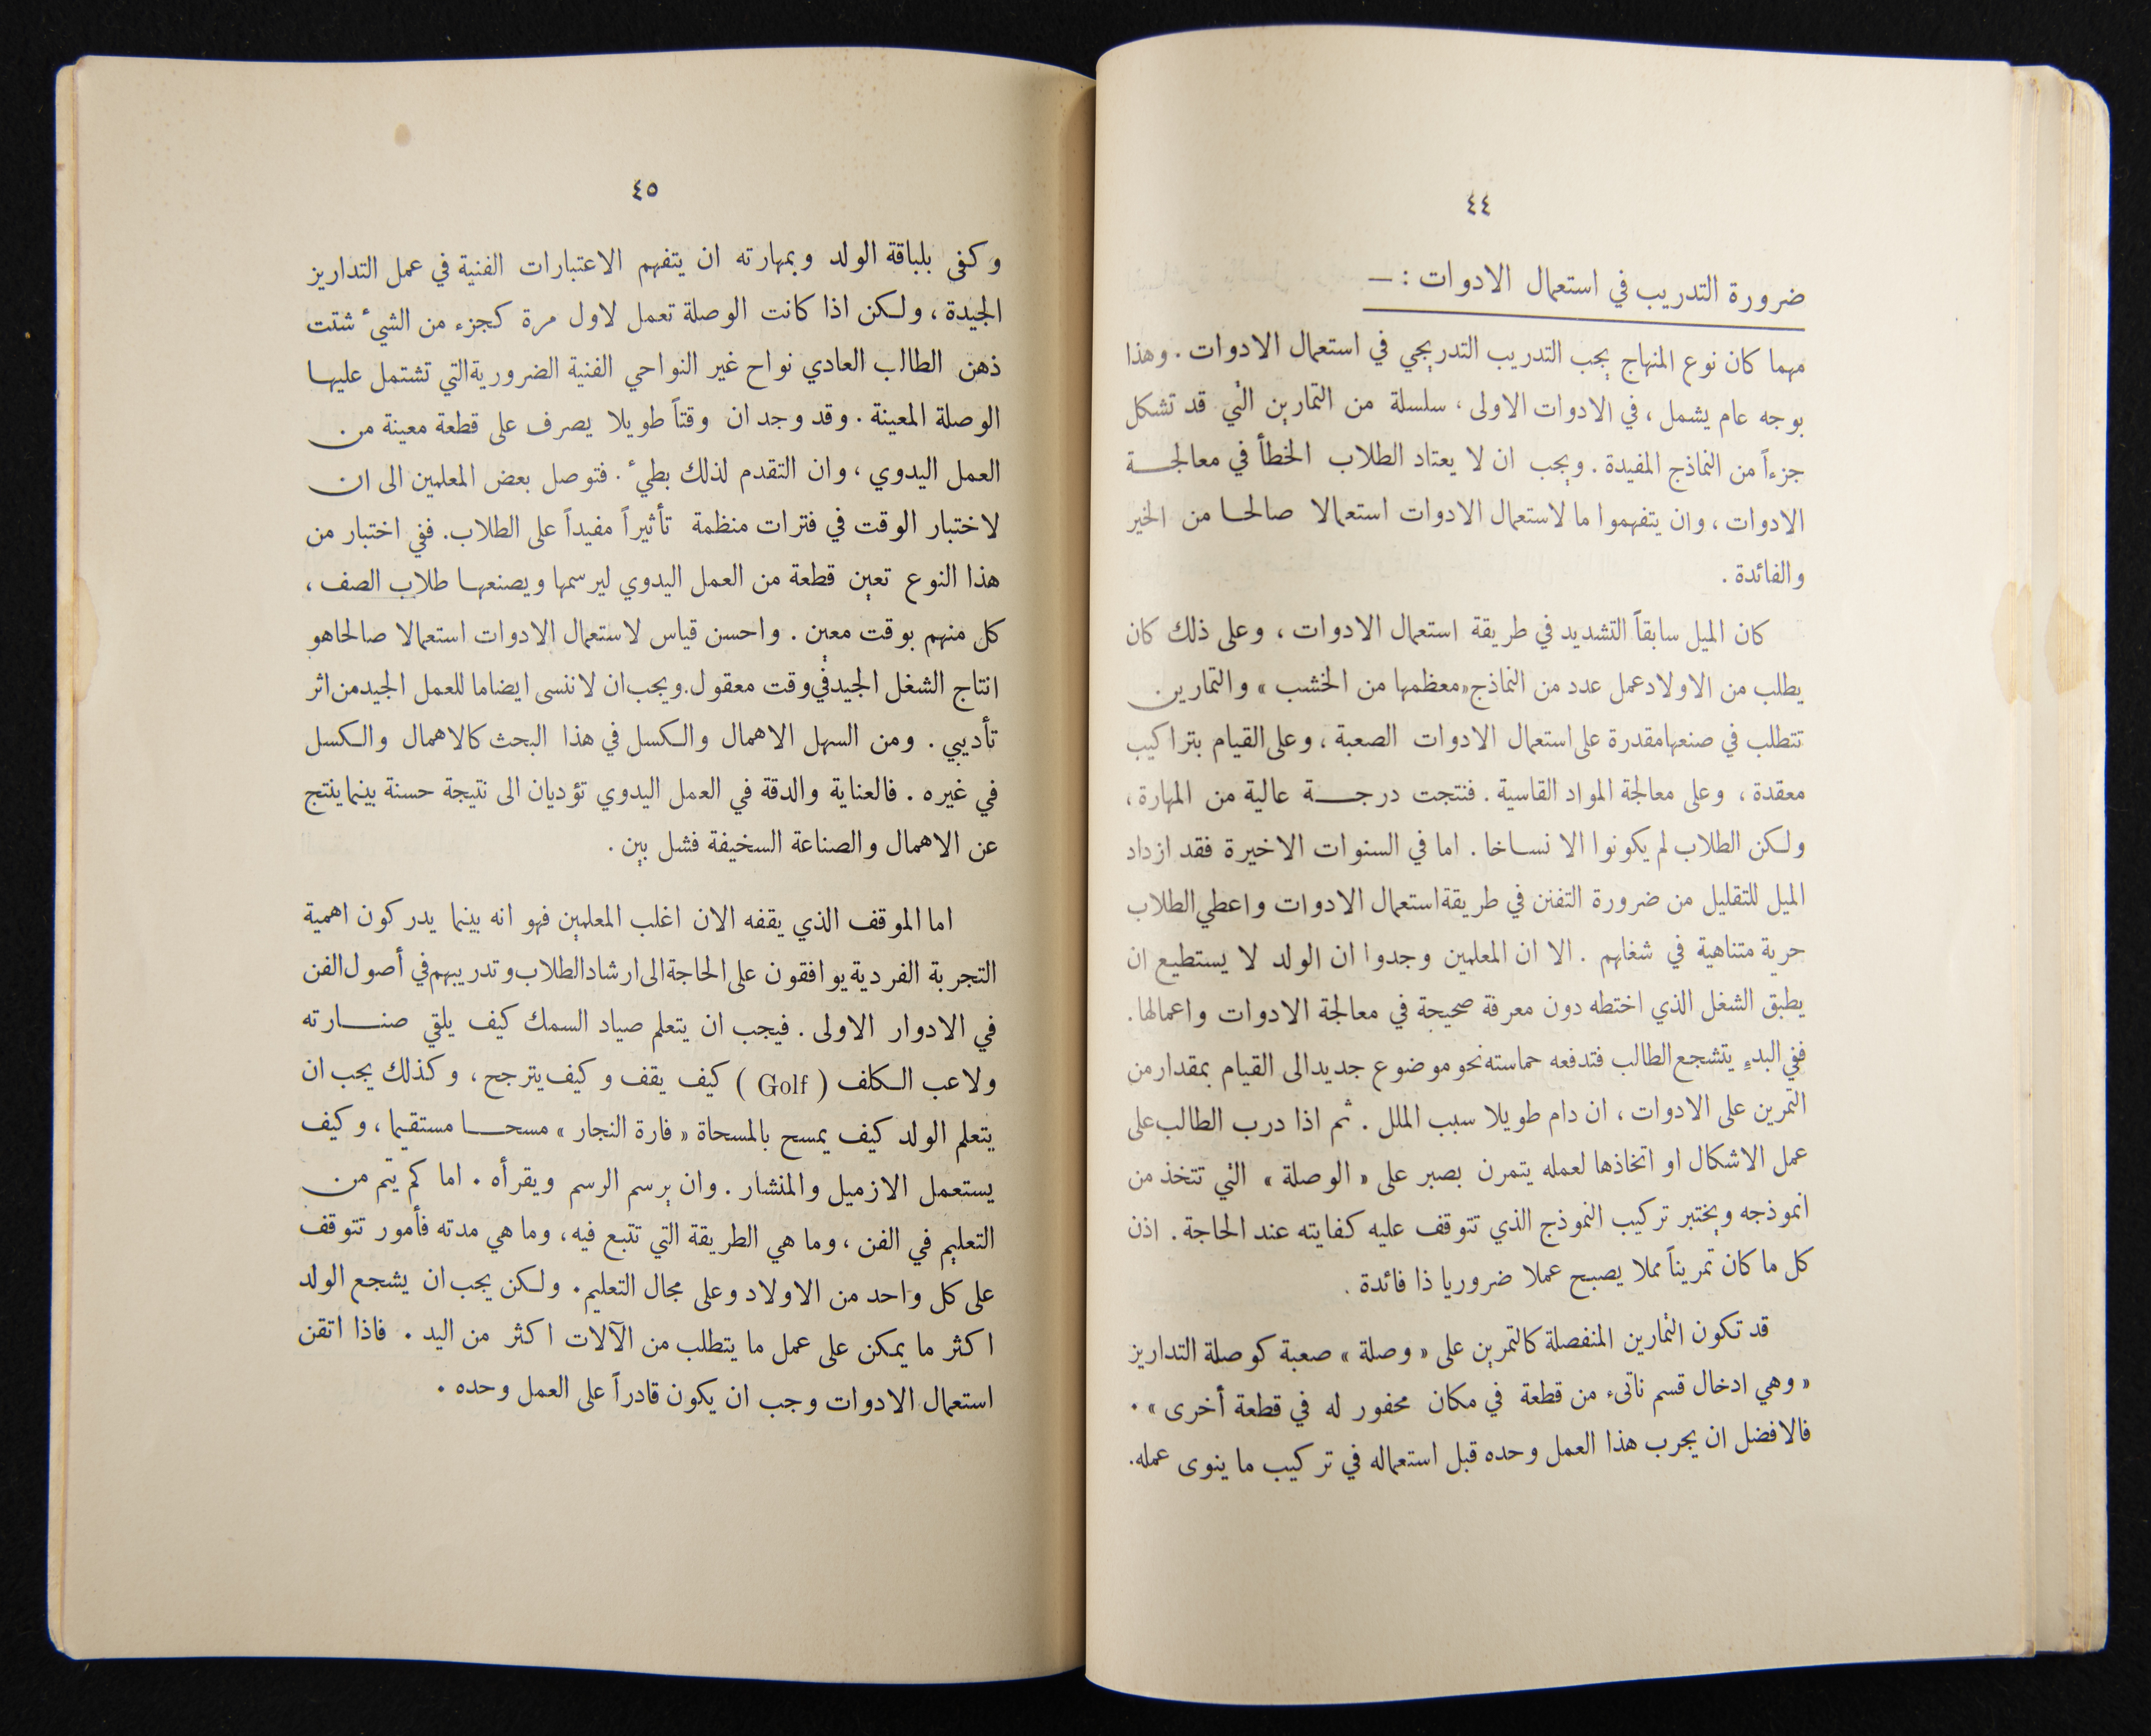 ٤٤
ضرورة التدريب في استعمال الادوات : —
مهما كان نوع المنهاج يجب التدريب التدريجي في استعمال الادوات . وهذا
بوجه عام يشمل ، في الادوات الاولى ، سلسلة من التمارين التي قد تشكل
جزءاً من النماذج المفيدة . ويجب ان لا يعتاد الطلاب الخطأ في معالجـــة
الادوات ، وان يتفهموا ما لاستعمال الادوات استعمالا صالحـا من الخير
والفائدة .
كان الميل سابقاً التشديد في طريقة استعمال الادوات ، وعلى ذلك كان
يطلب من الاولاد عمل عدد من النماذج «معظمها من الخشب» والتمارين
تتطلب في صنعها مقدرة على استعمال الادوات الصعبة ، وعلى القيام بتراكيب
معقدة ، وعلى معالجة المواد القاسية . فنتجت درجـــة عالية من المهارة ،
ولكن الطلاب لم يكونوا الا نساخا . اما في السنوات الاخيرة فقد ازداد
الميل للتقليل من ضرورة التفنن في طريقة استعمال الادوات واعطي الطلاب
حرية متناهية في شغلهم . الا ان المعلمين وجدوا ان الولد لا يستطيع ان
يطبق الشغل الذي اختطه دون معرفة صحيحة في معالجة الادوات واعمالها.
ففي البدءِ يتشجع الطالب فتدفعه حماسته نحو موضوع جديد الى القيام بمقدار من
التمرين على الادوات ، ان دام طويلا سبب الملل . ثم اذا درب الطالب على
عمل الاشكال او اتخاذها لعمله يتمرن بصبر على « الوصلة » التي تتخذ من
انموذجه ويختبر تركيب النموذج الذي تتوقف عليه كفايته عند الحاجة . اذن
كل ما كان تمريناً مملا يصبح عملا ضروريا ذا فائدة .
قد تكون التمارين المنفصلة كالتمرين على « وصلة » صعبة كوصلة التداريز
« وهي ادخال قسم ناتىء من قطعة في مكان محفور له في قطعة أخرى » .
فالافضل ان يجرب هذا العمل وحده قبل استعماله في تركيب ما ينوى عمله.
٤٥
وكفى بلباقة الولد وبمهارته ان يتفهم الاعتبارات الفنية في عمل التداريز
الجيدة ، ولكن اذا كانت الوصلة تعمل لاول مرة كجزء من الشيء شتت
ذهن الطالب العادي نواح غير النواحي الفنية الضرورية التي تشتمل عليهـا
الوصلة المعينة . وقد وجد ان وقتاً طويلا يصرف على قطعة معينة من
العمل اليدوي ، وان التقدم لذلك بطيء . فتوصل بعض المعلمين الى ان
لاختبار الوقت في فترات منظمة تأثيراً مفيداً على الطلاب. ففي اختبار من
هذا النوع تعين قطعة من العمل اليدوي ليرسمها ويصنعهـا طلاب الصف ،
كل منهم بوقت معين . واحسن قياس لاستعمال الادوات استعمالا صالحا هو
انتاج الشغل الجيد في وقت معقول. ويجب ان لا ننسى ايضا ما للعمل الجيد من اثر
تأديبي . ومن السهل الاهمال والكسل في هذا البحث كالاهمال والكسل
في غيره . فالعناية والدقة في العمل اليدوي تؤديان الى نتيجة حسنة بينما ينتج
عن الاهمال والصناعة السخيفة فشل بين .
اما الموقف الذي يقفه الان اغلب المعلمين فهو انه بينما يدركون اهمية
التجربة الفردية يوافقون على الحاجة الى ارشاد الطلاب وتدريبهم في أصول الفن
في الادوار الاولى . فيجب ان يتعلم صياد السمك كيف يلقي صنـــارته
ولاعب الكلف ( Golf ) كيف يقف وكيف يترجح ، وكذلك يجب ان
يتعلم الولد كيف يمسح بالمسحاة « فارة النجار » مسحـــا مستقيما ، وكيف
يستعمل الازميل والمنشار . وان يرسم الرسم ويقرأه . اما كم يتم من
التعليم في الفن ، وما هي الطريقة التي تتبع فيه ، وما هي مدته فأمور تتوقف
على كل واحد من الاولاد وعلى مجال التعليم . ولكن يجب ان يشجع الولد
اكثر ما يمكن على عمل ما يتطلب من الآلات اكثر من اليد . فاذا اتقن
استعمال الادوات وجب ان يكون قادراً على العمل وحده .